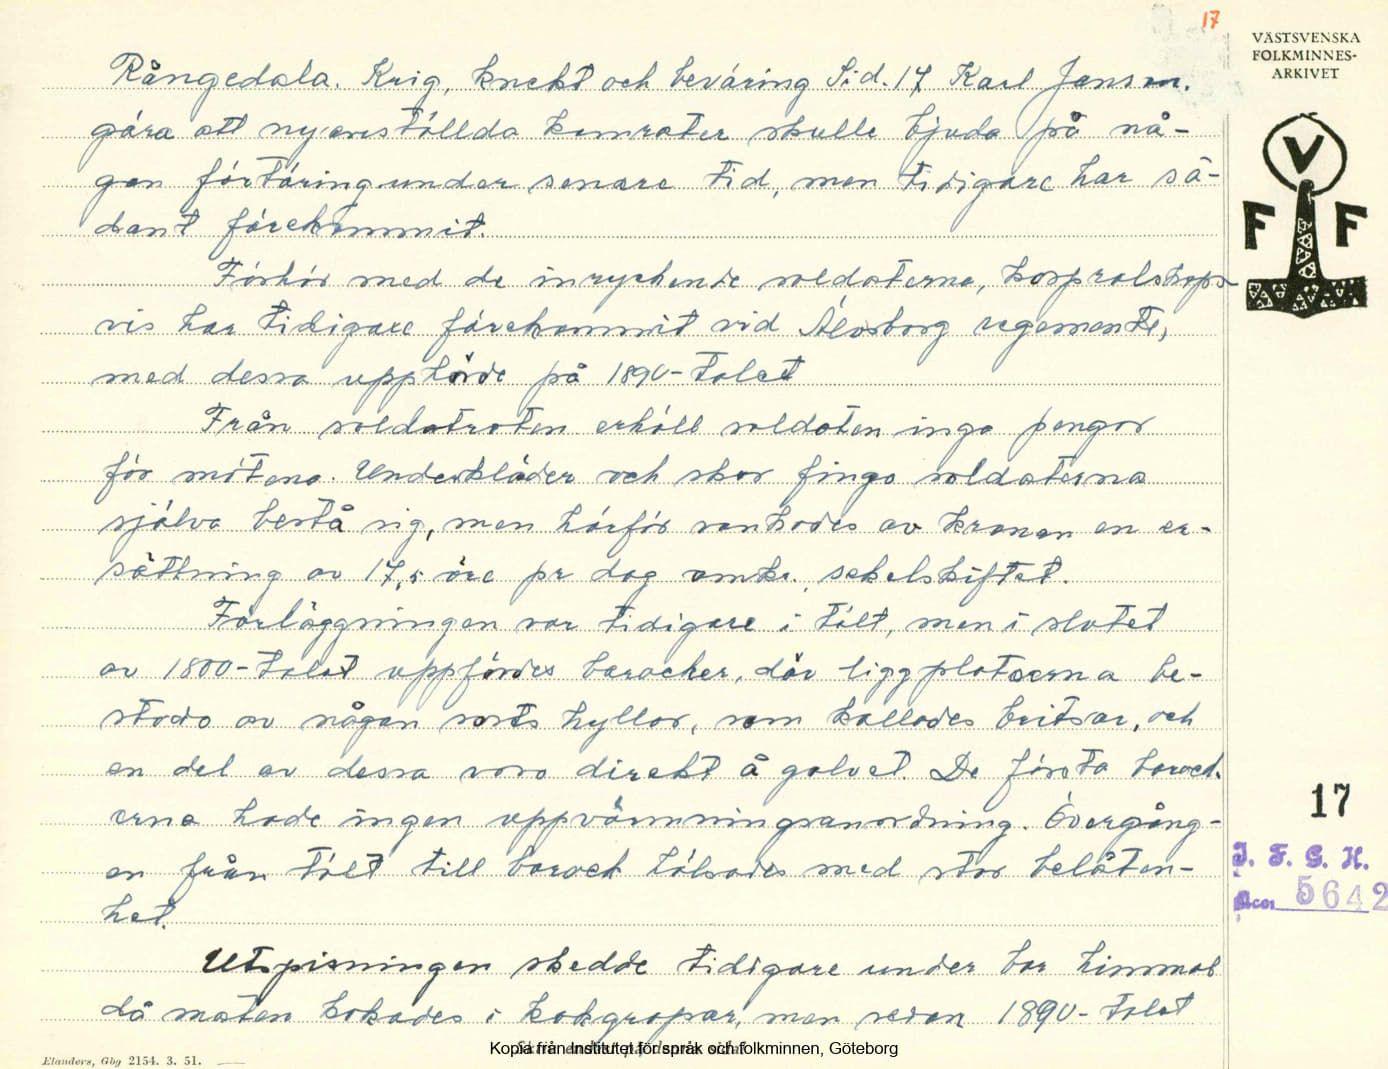 17
VÄSTSVENSKA
FOLKMINNES-
ARKIVET
Rångedala. Krig, knekt och beväring Sid. 17 Karl Jansson.
göra att nyanställda kamrater skulle bjuda på nå-
gon förtäring under senare tid, men tidigare har så-
dant förekommit.
Förhör med de inryckende soldaterna, korpralskaps
vis har tidigare förekommit vid Älvsborg regemente,
med dessa upphörde på 1890-talet
Från soldatroten erhöll soldaten inga pengar
för mötena. Underkläder och skor fingo soldaterna
själva bestå sig, men härför vankades av kronan en er-
sättning av 17,5 öre pr dag omkr. sekelskiftet.
Förläggningen var tidigare i tält, men i slutet
av 1800-talet uppfördes baracker, där liggplatserna be-
stodo av någon sorts hyllor, som kallades britsar, och
en del av dessa voro direkt å golvet. De första barack-
erna hade ingen uppvärmningsanordning. Övergång-
en från tält till barack hälsades med stor belåten-
het.
Utspisningen skedde tidigare under bar himmel
då maten kokades i kokgropar, men redan 1890-talet
V
F F
17
I. F. G. H.
Acc. 5642
Elanders, Gbg 2154. 3. 51.
Kopia från Institutet för språk och folkminnen, Göteborg